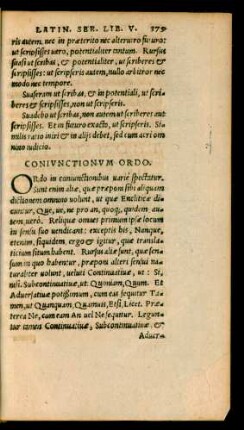 LATIN. SER. LIB. V. 175
ris autem, nec in præterito nec alterutro futuro:
ut scripsisses uero, potentialiter tantum. Rursus
suasi ut scribas, & potentialiter, ut scriberes &
scripsisses: ut scripseris autem, nullo arbitror nec
modo nec tempore.
Suaseram ut scribas, & in potentiali, ut scri
beres & scripsisses, non ut scripseris.
Suadebo ut scribas, non autem ut scriberes aut
scripsisses. Et in futuro exacto, ut scripseris. Simi
milis ratio iniri & in alijs debet, sed cum acri om
nino iudicio.
CONIVNCTIONVM ORDO.
ORdo in coniunctionibus uarie spectatur.
Sunt enim aliæ, quæ præponi sibi aliquam
dictionem omnino uolunt, ut quæ Encliticæ di
cuntur, Que, ue, ne pro an, quoq, quidem au
tem uero. Reliquæ omnes primum ipsæ locum
in sensu suo uendicant: exceptis his, Nanque,
etenim, siquidem, ergo & igitur, quæ transla-
ticium situm habent. Rursus aliæ sunt, quæ sen-
sum in quo habentur, præponi alteri sensui na-
turaliter uolunt, ueluti Continuatiuæ, ut: Si,
nisi. Subcontinuatiuæ, ut Quum, Quum. Et
Aduersatiuæ potissimum, cum eas sequitur Ta-
men, ut Quanquam, Quamuis, Etsi, Licet. Præ-
terea Ne, cum eam An uel Ne sequitur. Legun-
tur tamen Continuatiuæ, Subcontinuatiuæ, &
Aduer-